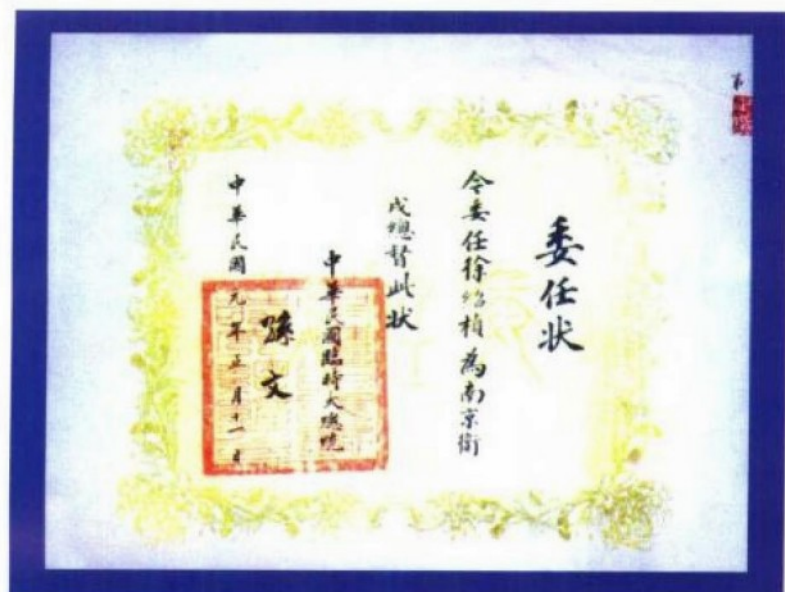 委任状
令委任徐紹楨為南京衛
戍總督此状
中華民國臨時大總統
孫文
中華民國元年正月十一日
第